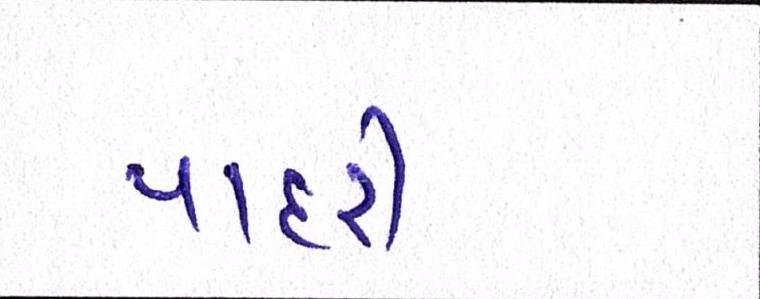 પાદરી